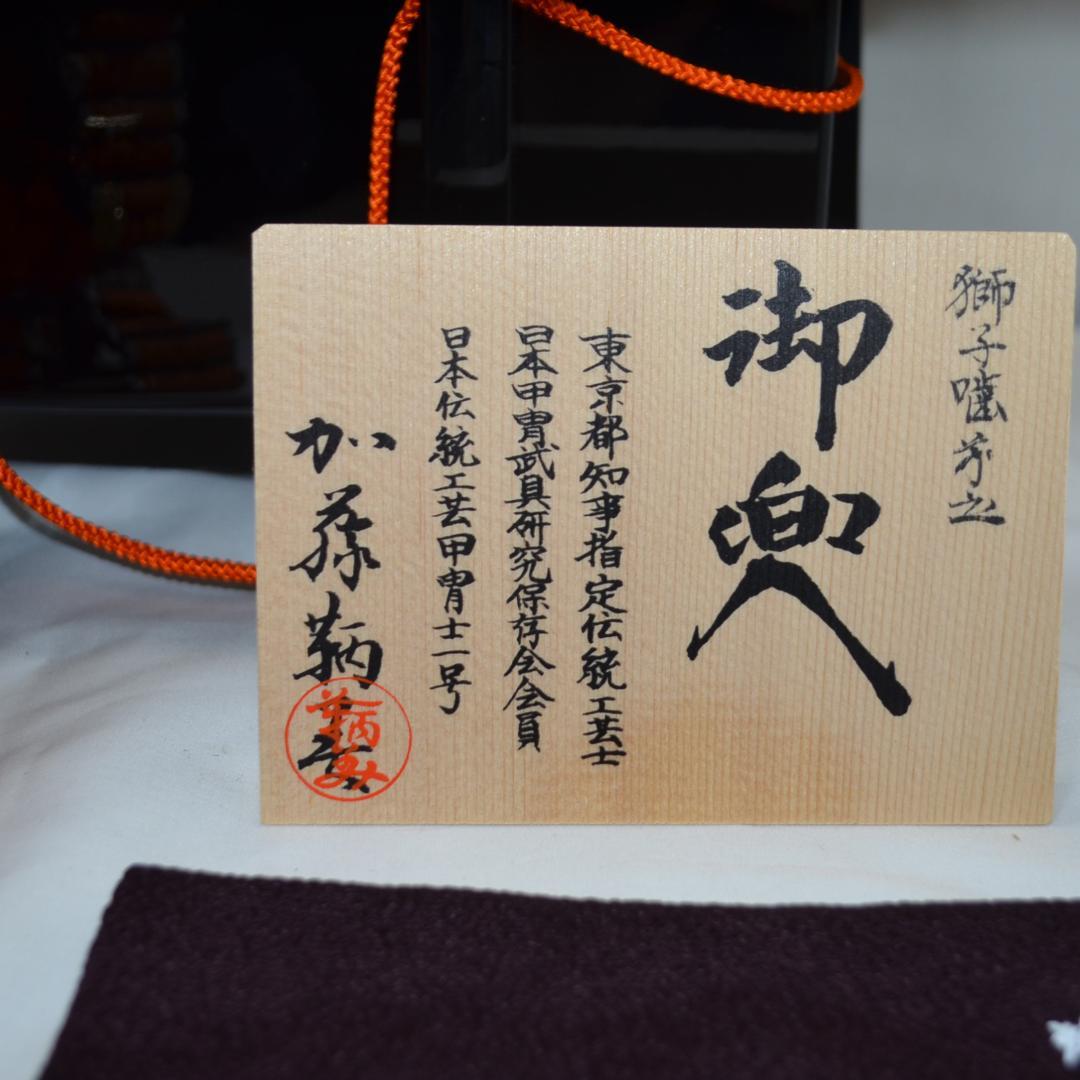 獅子噛前立
御兜
東京都知事指定伝統工芸士
日本甲冑武具研究保存会会員
日本伝統工芸甲冑士一号
加藤鞆